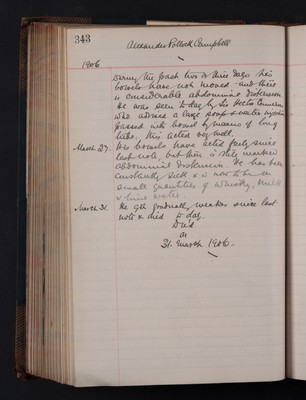 343
Alexander Pollock Campbell
1906
During the past two or three days his
bowels have not moved and there
is considerable abdominal distension.
He was seen today by Sir Hector Cameron
who advised a large soap & water injection
passed into bowel by means of long
tube: this acted very well.
March 27. His bowels have acted fairly since
last note but there is still marked
abdominal distension. He has been
constantly sick & is now taken on
small quantities of whisky, milk
& lime water.
March 31. He got gradually weaker since last
note & died to day.
Died
on
31. March 1906.